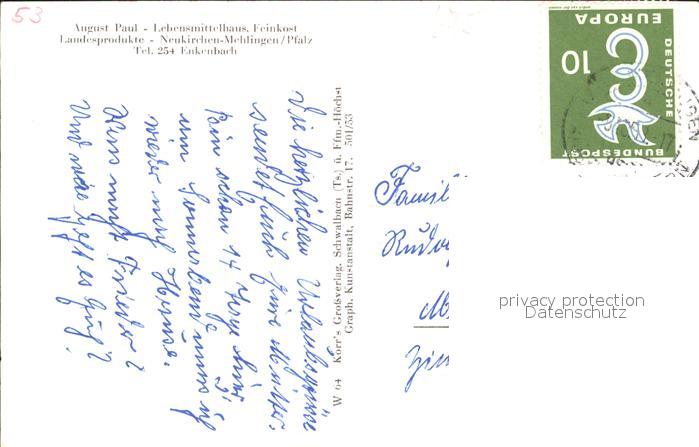 53
August Paul - Lebensmittelhaus, Feinkost
Landesprodukte - Neukirchen-Mehlingen/Pfalz
Tel. 254 Enkenbach
Die herzlichen Urlaubsgrüsse
sendet Euch Eure Mutter.
Bin schon 14 Tage hier
am Sonnabend muss ich
wieder nach Hause.
Was macht Frieder?
Und wie geht es Euch?
W 64 Korr's Großverlag, Schwalbach (Ts.) ü. Ffm.-Höchst
Graph. Kunstanstalt, Bahnstr. 17. 501/53
EUROPA
10
DEUTSCHE
BUNDESPOST
Famil
Rudo
M
privacy protection
Datenschutz